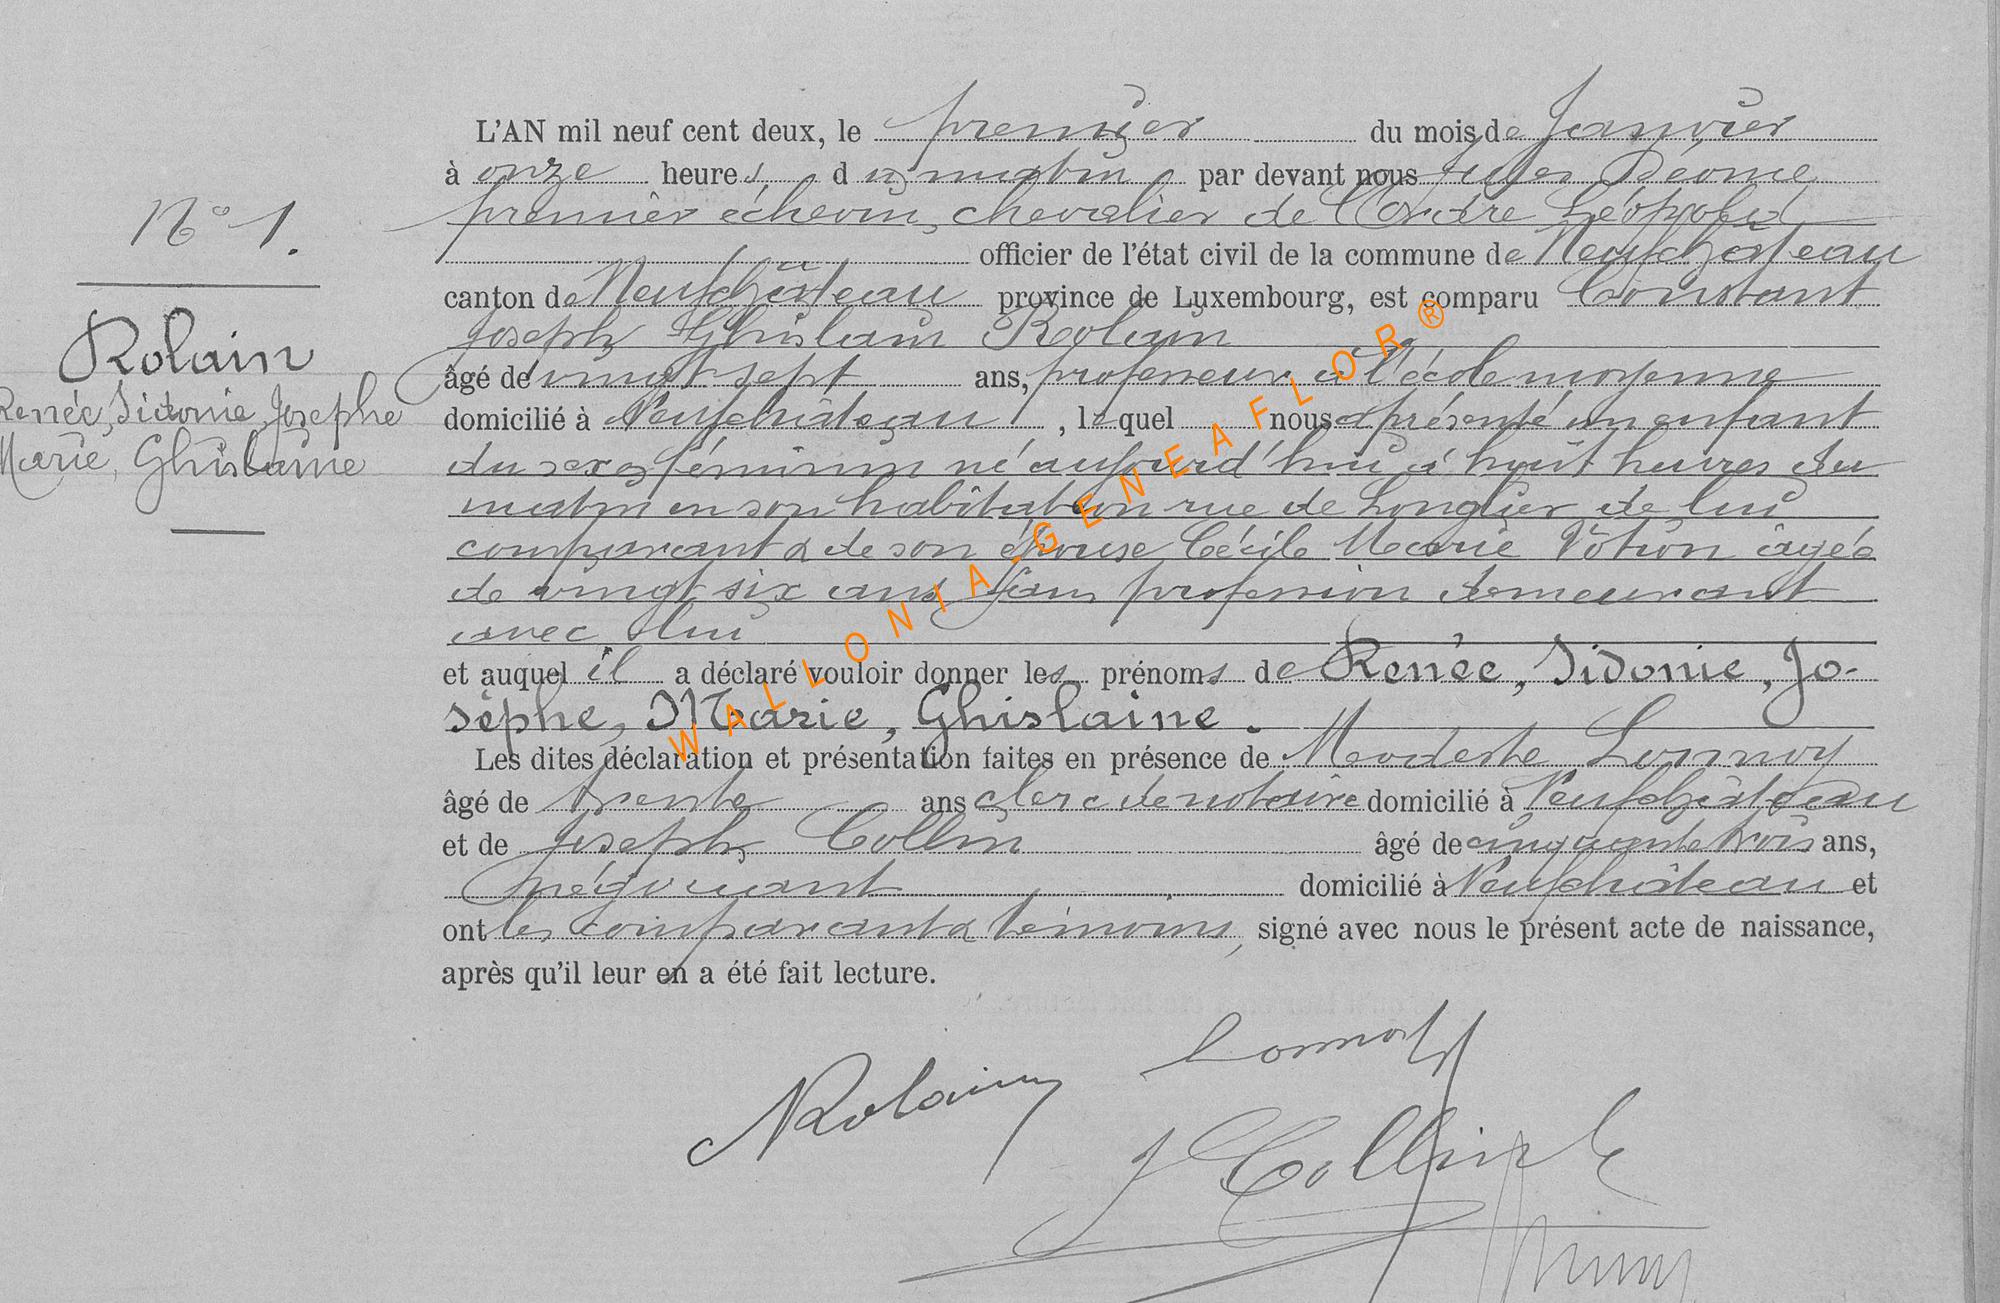 N° 1.
Rolain
Renée, Sidonie, Josephe
Marie, Ghislaine
L'AN mil neuf cent deux, le premier du mois de Janvier
à onze heures, du matin par devant nous Jules Déome
premier échevin, chevalier de l'Ordre Léopold
officier de l'état civil de la commune de Neufchâteau
canton de Neufchâteau province de Luxembourg, est comparu Constant
Joseph Ghislain Rolain
âgé de vingt sept ans, professeur à l'école moyenne
domicilié à Neufchâteau, lequel nous a présenté un enfant
du sexe féminin né aujourd'hui à huit heures du
matin en son habitation rue de Longlier de lui
comparant & de son épouse Cécile Marie Votion âgée
de vingt six ans sans profession demeurant
avec lui
et auquel il a déclaré vouloir donner les prénoms de Renée, Sidonie, Jo-
sèphe, Marie, Ghislaine.
Les dites déclaration et présentation faites en présence de Modeste Lonnoy
âgé de trente ans clerc de notaire domicilié à Neufchâteau
et de Joseph Collin âgé de cinquante trois ans,
négociant domicilié à Neufchâteau et
ont les comparant & témoins, signé avec nous le présent acte de naissance,
après qu'il leur en a été fait lecture.
Rolain Lonnoy
J Collin
WALLONIA-GENEAFLOR®